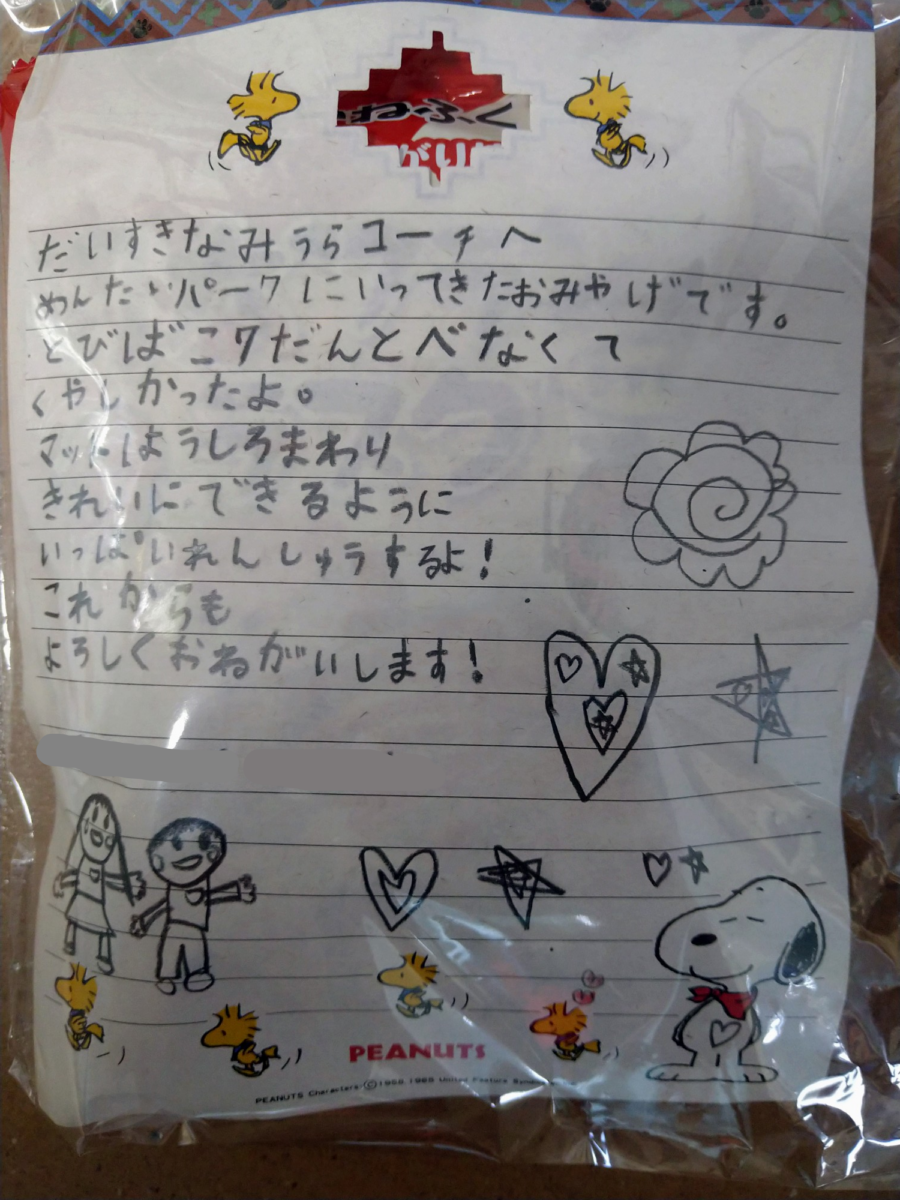 ねふく
がい
だいすきなみうらコーチへ
めんたいパークにいってきたおみやげです。
とびばこ7だんとべなくて
くやしかったよ。
マットはようしろまわり
きれいにできるように
いっぱいれんしゅうするよ！
これからも
よろしくおねがいします！
PEANUTS
PEANUTS Characters © 1958, 1965 United Feature